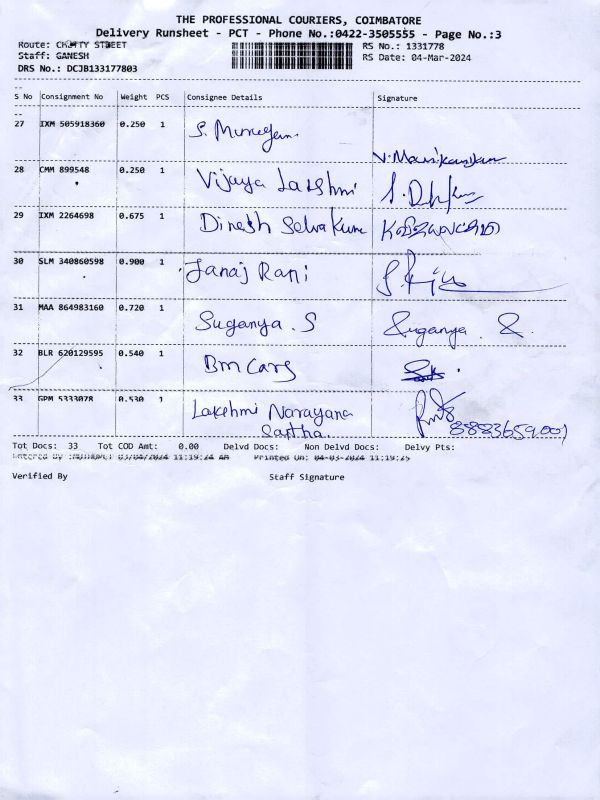 THE PROFESSIONAL COURIERS, COIMBATORE
Delivery Runsheet - PCT - Phone No.:0422-3505555 - Page No.:3
Route: CHETTY STREET RS No.: 1331778
Staff: GANESH RS Date: 04-Mar-2024
DRS No.: DCJB133177803
S No Consignment No Weight PCS Consignee Details Signature
27 IXM 505918360 0.250 1 S. Murugan V. Manikandan
28 CMM 899548 0.250 1 Vijaya Lakshmi
29 IXM 2264698 0.675 1 Dinesh Selvakumr
30 SLM 340860598 0.900 1 Janaj Rani
31 MAA 864983160 0.720 1 Suganya . S Suganya . S.
32 BLR 620129595 0.540 1 Bm Cars
33 GPM 5333078 0.530 1 Lakshmi Narayana
Sastha. 8883659001
Tot Docs: 33 Tot COD Amt: 0.00 Delvd Docs: Non Delvd Docs: Delvy Pts:
Entered By 03/04/2024 11:19:24 AM Printed On: 04-03-2024 11:19:25
Verified By Staff Signature